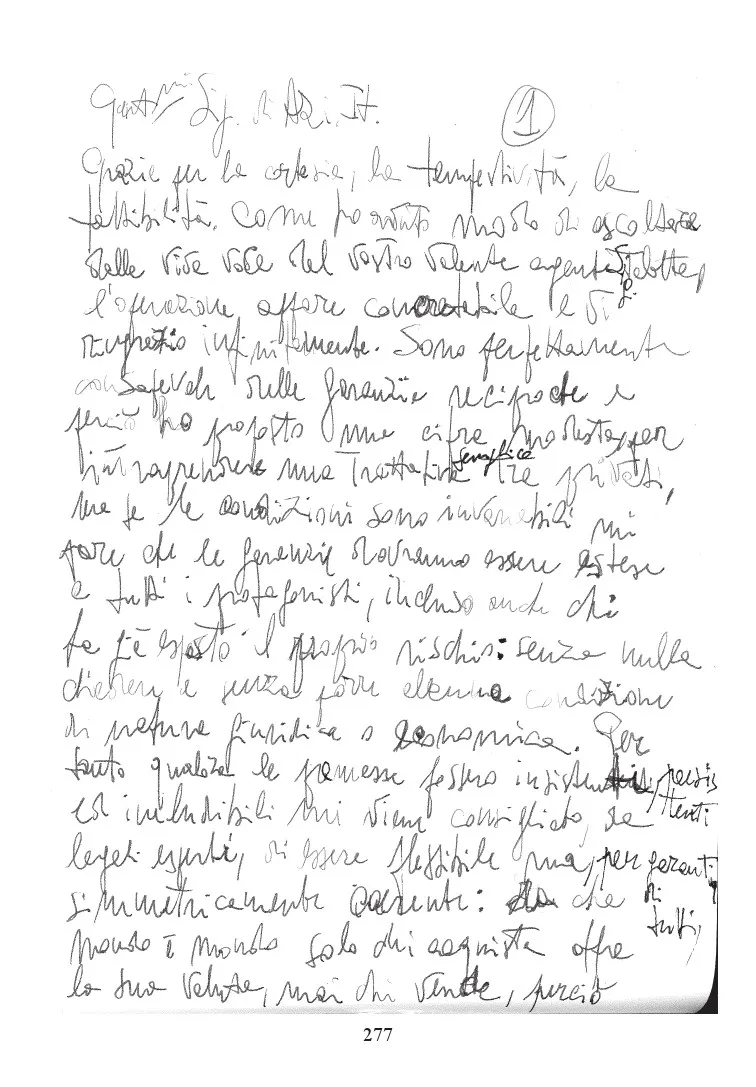 Gent.mi Sig. di Azi. It.
1
Grazie per la cortesia, la tempestività, la
fattibilità. Come ho avuto modo di ascoltare
dalle vive voce del vostro valente agente
l'operazione, affare concretabile e vi
ringrazio infinitamente. Sono perfettamente
consapevole sulle garanzie reciproche e
perciò ho proposto una cifra modesta, per
intraprendere una trattativa semplice tra privati,
ma se le condizioni sono invariabili mi
pare che le garanzie dovranno essere estese
a tutti i protagonisti, incluso anche chi
fa già esposto il proprio rischio: senza nulla
chiedere e senza porre alcuna condizione
di natura giuridica o economica. Per
tanto qualora le premesse fossero insistenti, persistenti
ed ineludibili mi viene consigliato, da
legali esperti, di essere flessibile ma, per garanti
simmetricamente coerente: che di tutti,
mondo è mondo solo chi acquista offre
la sua valuta, mai chi vende, perciò
277